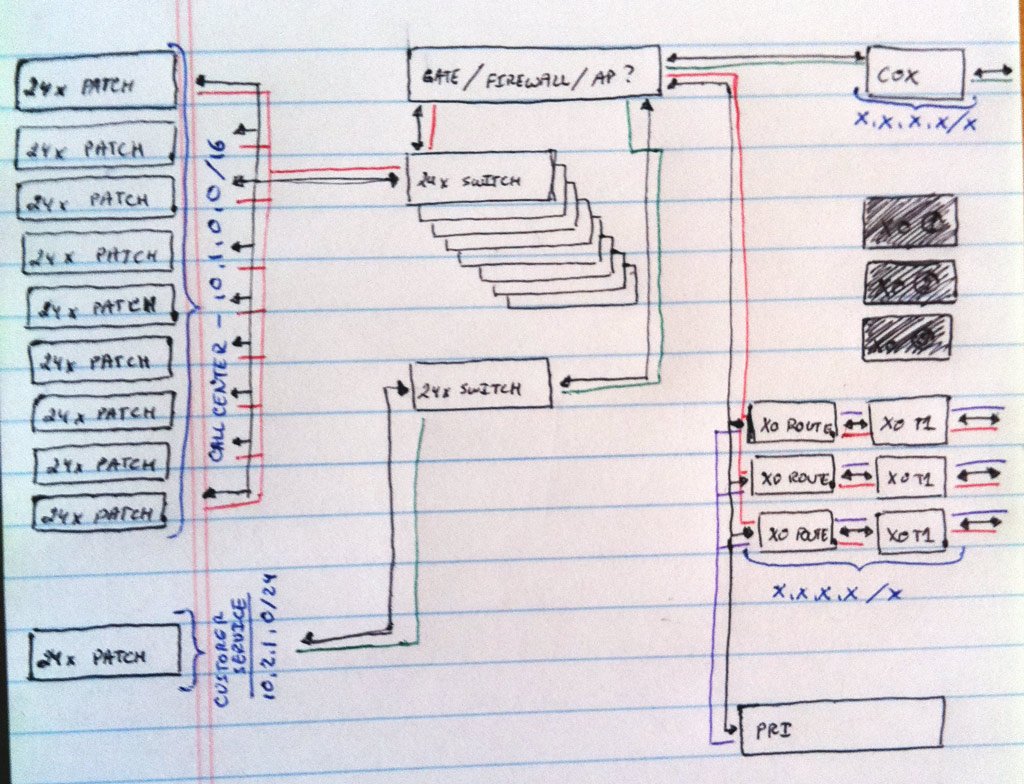 24x PATCH
24x PATCH
24x PATCH
24x PATCH
24x PATCH
24x PATCH
24x PATCH
24x PATCH
24x PATCH
CALL CENTER - 10.1.0.0/16
24x PATCH
CUSTOMER
SERVICE
10.2.1.0/24
GATE/FIREWALL/AP?
24x SWITCH
24x SWITCH
COX
x.x.x.x/x
XO
XO
XO
XO ROUTE
XO T1
XO ROUTE
XO T1
XO ROUTE
XO T1
x.x.x.x/x
PRI